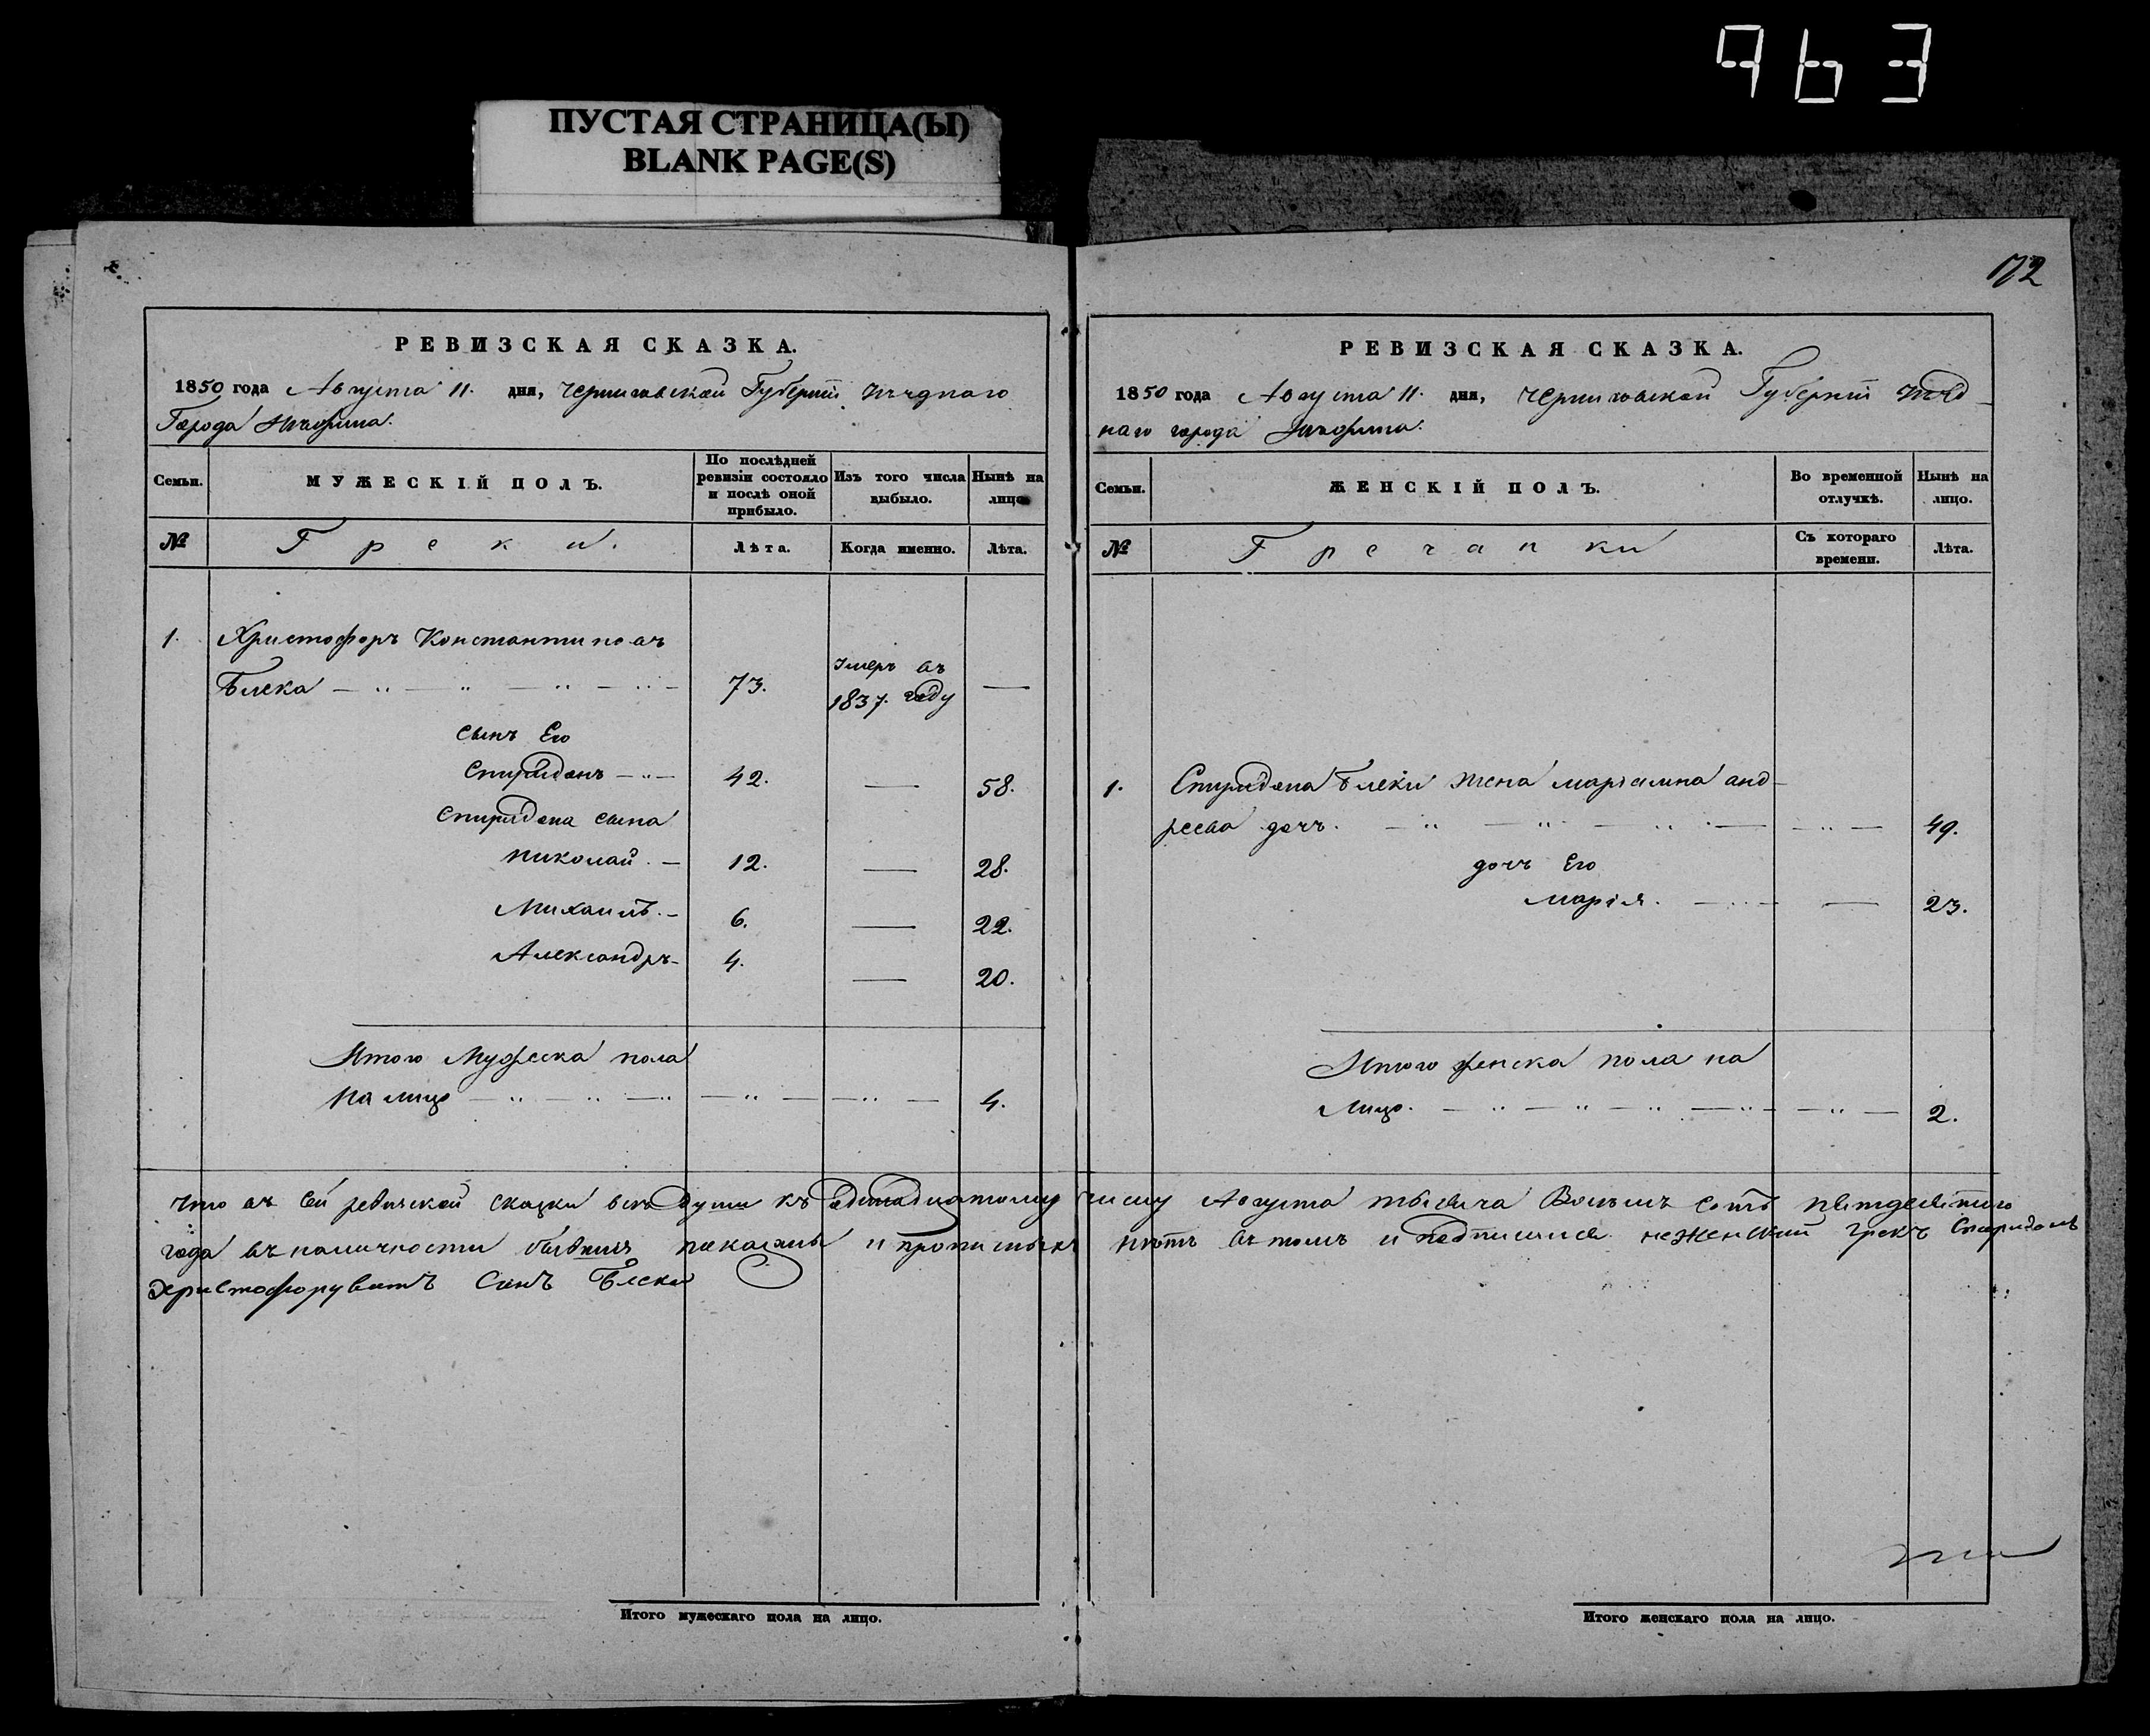 963
ПУСТАЯ СТРАНИЦА(Ы)
BLANK PAGE(S)
172
РЕВИЗСКАЯ СКАЗКА.
1850 года Августа 11. дня, Черниговской Губерніи
Города Нѣжина.
Семьи.
МУЖЕСКІЙ ПОЛЪ.
По послѣдней ревизіи состояло и послѣ оной прибыло.
Изъ того числа выбыло.
Нынѣ на лицо.
№
Греки.
Лѣта.
Когда именно.
Лѣта.
1. Христофоръ Константиновъ
Блека — 73. Умеръ въ 1837. году —
сынъ Его
Спиридонъ — 42. — 58.
Спиридона сына
Николай. — 12. — 28.
Михаилъ. — 6. — 22.
Александръ — 4. — 20.
Итого Мужеска пола
на лицо — 4.
РЕВИЗСКАЯ СКАЗКА.
1850 года Августа 11. дня, Черниговской Губерніи
наго города Нѣжина.
Семьи.
ЖЕНСКІЙ ПОЛЪ.
Во временной отлучкѣ.
Нынѣ на лицо.
№
Гречанки
Съ котораго времени.
Лѣта.
1. Спиридона Блеки жена анд-
реева дочь. — 49.
дочь Его
Марія. — — 23.
Итого женска пола на
Лицо. — 2.
Что въ сей ревизской сказки всѣ души къ одинадцатому числу Августа тысяча Восемъ сотъ пятдесятого
года въ наличности бывшия показаны и прописныхъ нѣтъ въ томъ и подписался неженский грекъ Спиридонъ
Сынъ Блека
Итого мужескаго пола на лицо.
Итого женскаго пола на лицо.